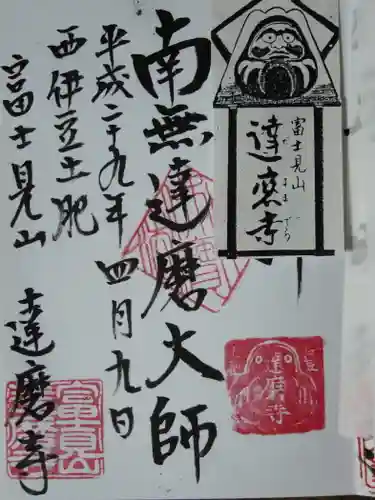 南無達磨大師
平成二十九年四月九日
西伊豆土肥
富士見山
達磨寺
富士見山
達磨寺
だるまでら
達磨寺
富見山